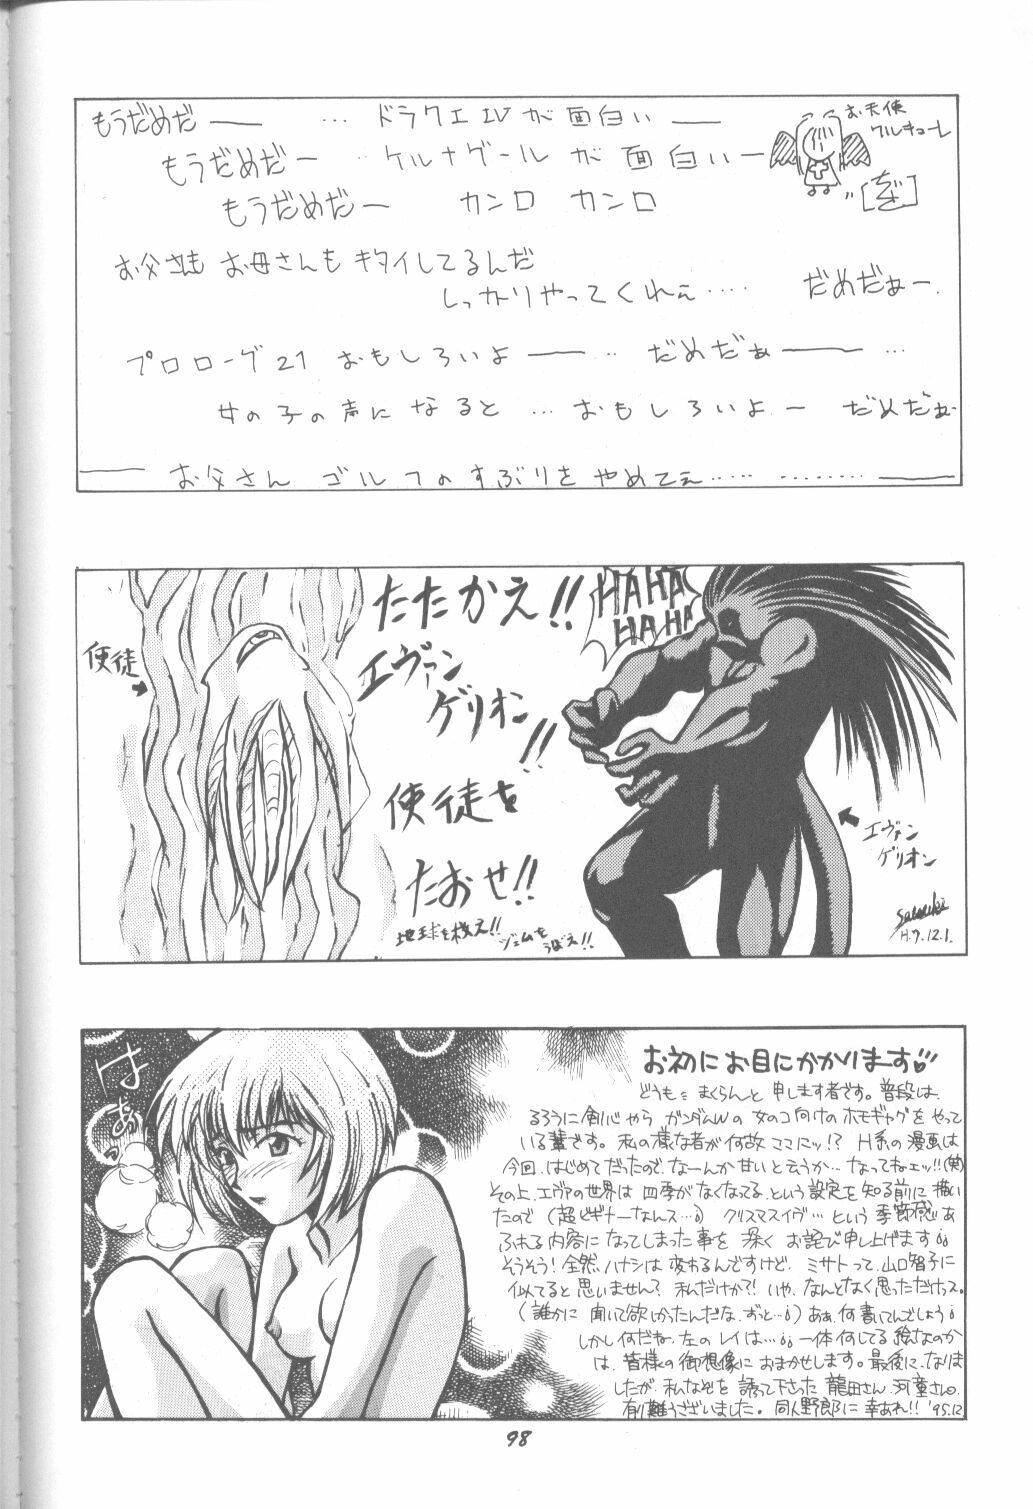 もうだめだ―― … ドラクエIVが面白い――
お天使
ケルキョーレ
もうだめだー … ケルナグールが面白いー
もうだめだー カンロ カンロ
お父さも お母さんも キタイしてるんだ
しっかりやってくれぇ‥‥ だめだぁー.
プロローグ21 おもしろいよ――‥ だめだぁ―― …
女の子の声に なると … おもしろいよー だめだぁ
―― お父さん ゴルフのすぶりを やめてぇ‥‥‥ ‥‥‥‥ ――
たたかえ!!
HAHA
HAHA
使徒
エヴァン
ゲリオン!!
使徒を
エヴァン
ゲリオン
たおせ!!
地球を救え!!
ジェムをうばえ!!
H.7.12.1.
はぁ
お初にお目にかかります
どうも まくらんと 申します者です。普段は、
るろうに剣心やら ガンダムWの 女のコ向けの ホモギャグを やって
いる輩です。私の様な者が何故 ココにッ!? H系の漫画は
今回、はじめてだったので、なーんか甘いと云うか…なってねェッ!!(笑)
その上、エヴァの世界は 四季がなくなってる、という設定を知る前に描い
たので(超ビギナーなんス…) クリスマスイヴ…という 季節感あ
ふれる内容に なってしまった事を 深く お詫び申し上げます
そうそう!全然、ハナシは 変わるんですけど、ミサトって、山口智子に
似てると思いません? 私だけか?! いや、なんとなく思っただけっス。
(誰かに 聞いて欲しかったんだな、ずっと…) あぁ、何書いてんでしょう
しかし何だね、左の レイは… 一体 何してる 絵なのか
は、皆様の御想像に おまかせします。最後に、なりま
したが、私なぞを 誘って下さった 龍田さん、河童さん、
有難うございました。同人野郎に 幸あれ!! '95.12
98